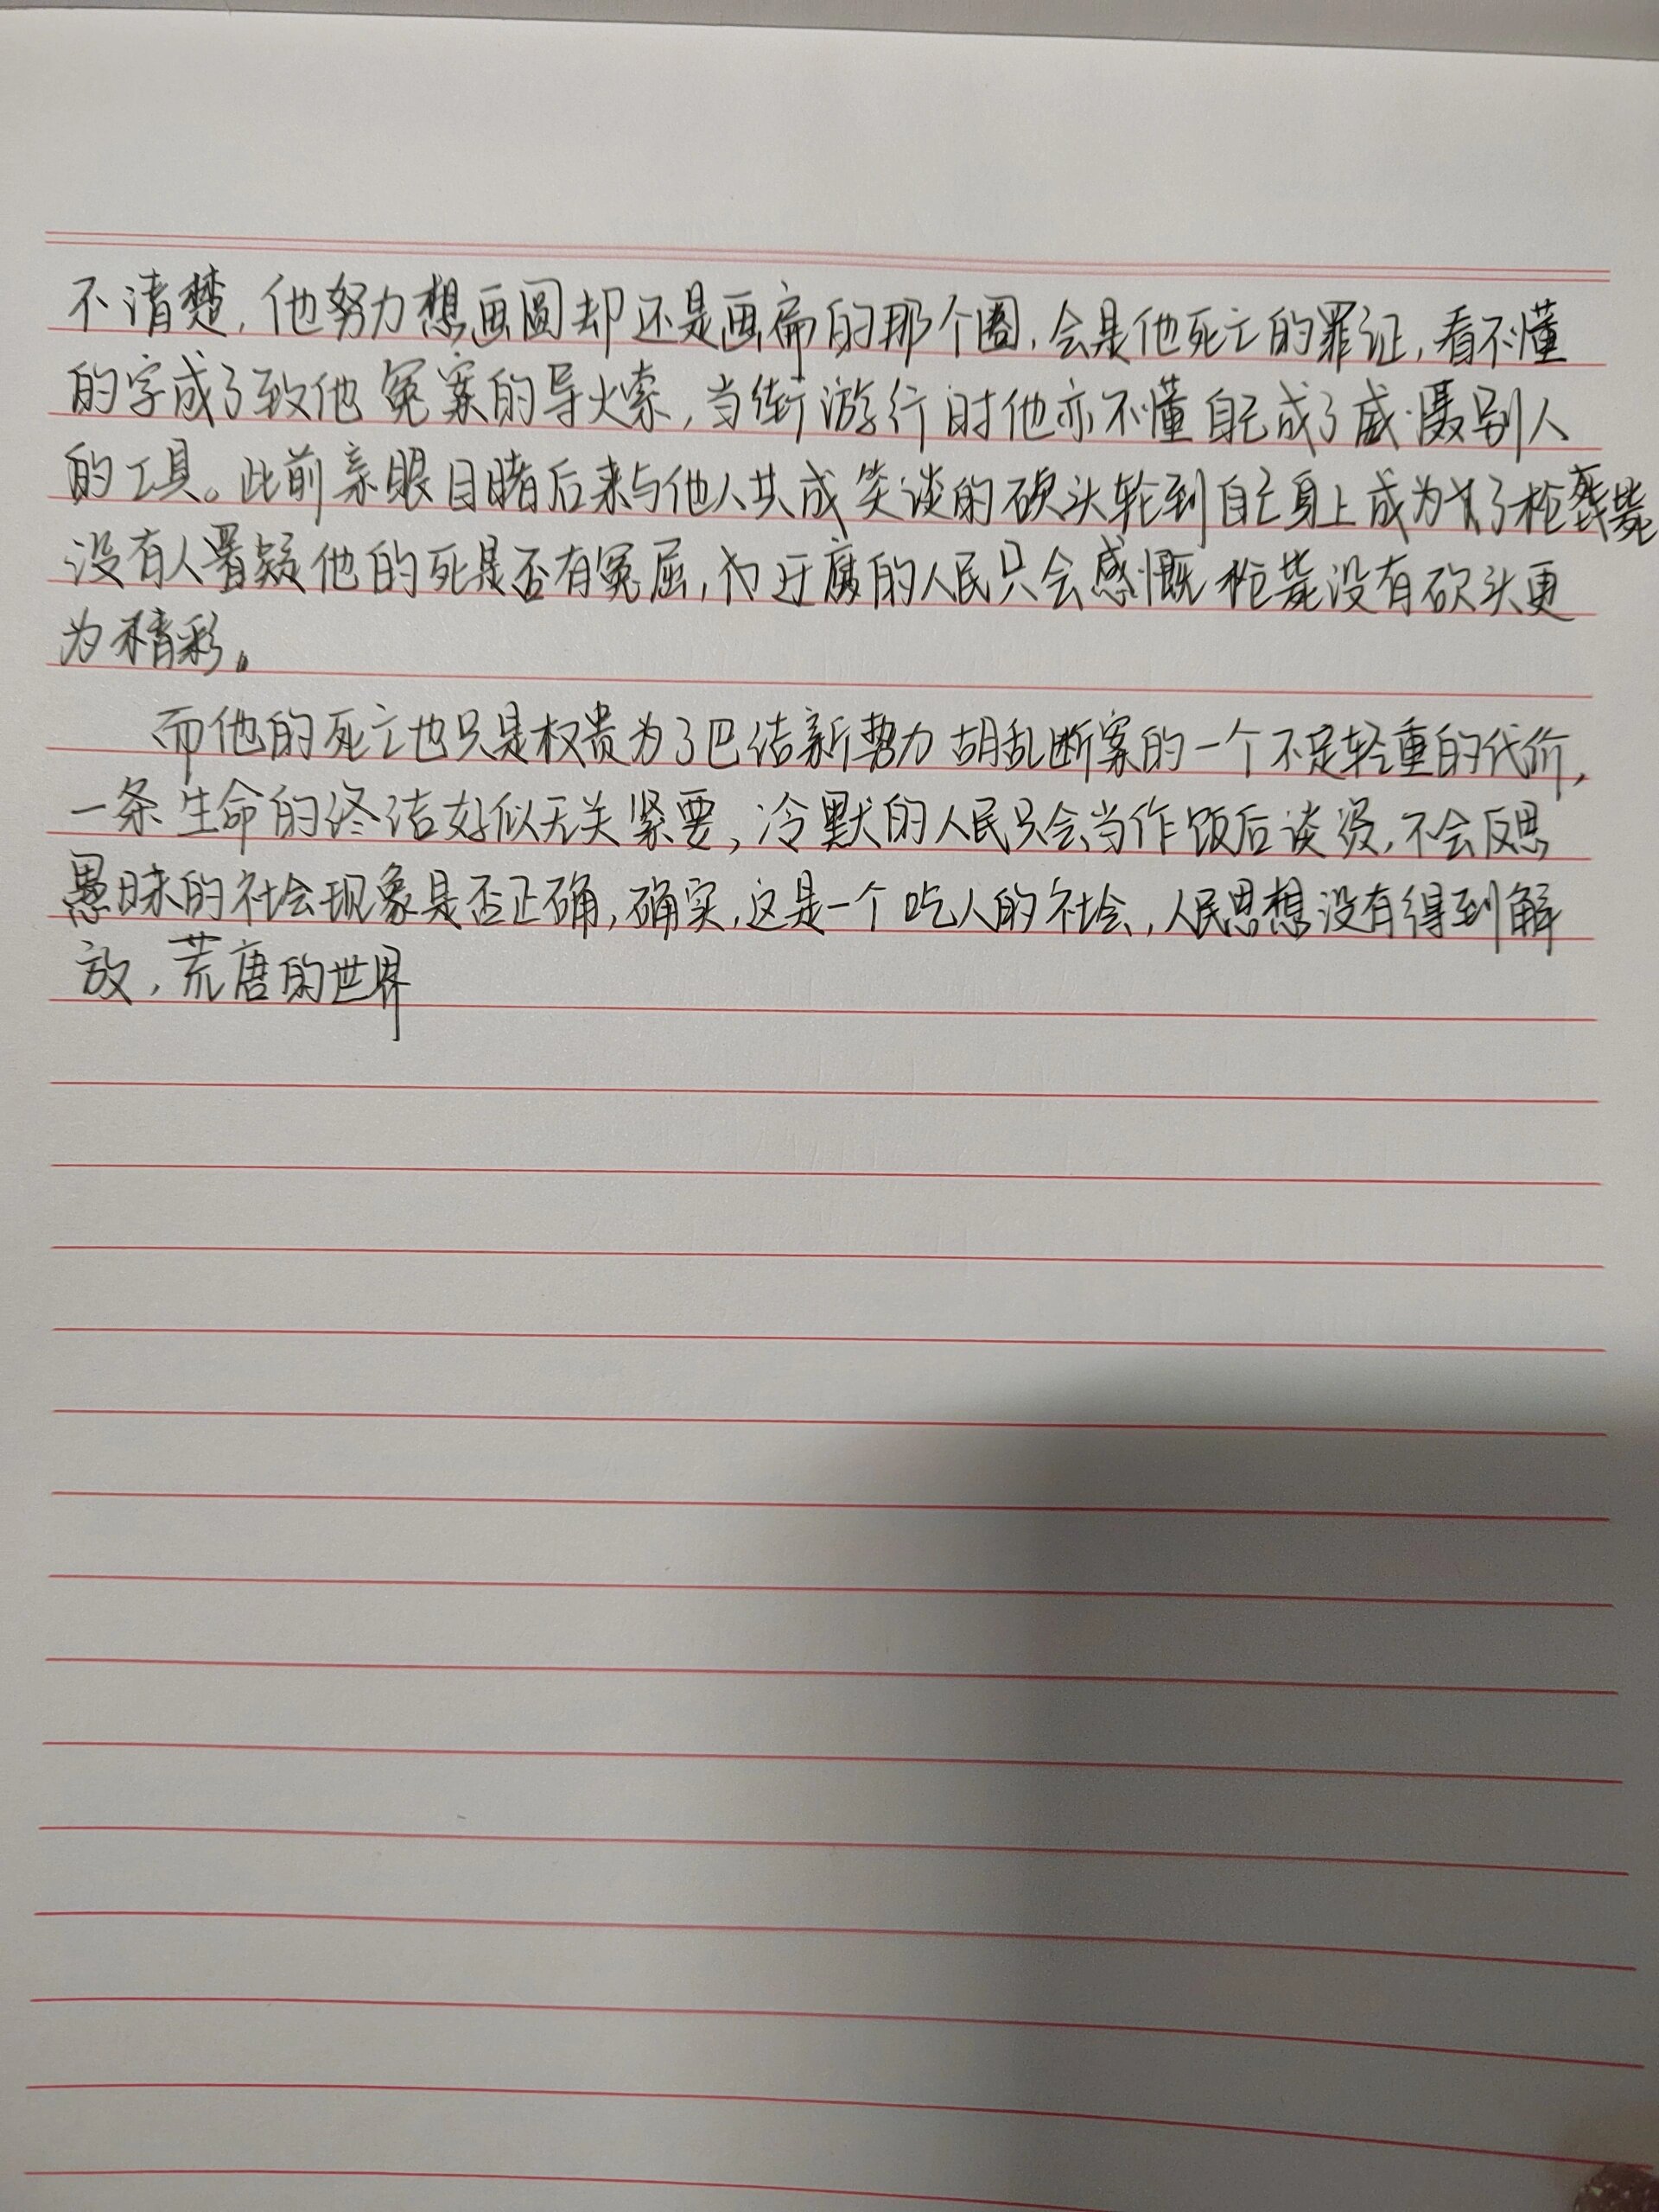 不清楚,他努力想画圆却还是画扁的那个圈,会是他死亡的罪证,看不懂
的字成了致他冤案的导火索,当街游行时他亦不懂自己成了威慑别人
的工具。此前亲眼目睹后来与他人共成笑谈的砍头轮到自己身上成为了枪毙
没有人置疑他的死是否有冤屈,迂腐的人民只会感慨枪毙没有砍头更
为精彩。
而他的死亡也只是权贵为了巴结新势力胡乱断案的一个不足轻重的代价,
一条生命的终结好似无关紧要,冷默的人民只会当作饭后谈资,不会反思
愚昧的社会现象是否正确,确实,这是一个吃人的社会,人民思想没有得到解
放,荒唐的世界